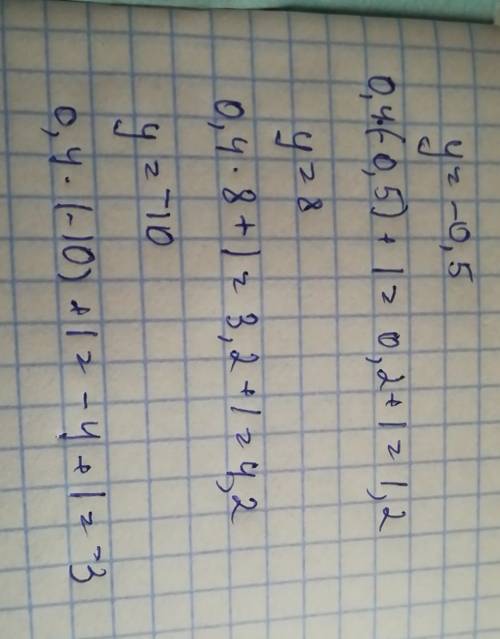 y = -0,5
0,4·(-0,5) + 1 = 0,2 + 1 = 1,2
y = 8
0,4 · 8 + 1 = 3,2 + 1 = 4,2
y = -10
0,4 · (-10) + 1 = -4 + 1 = -3